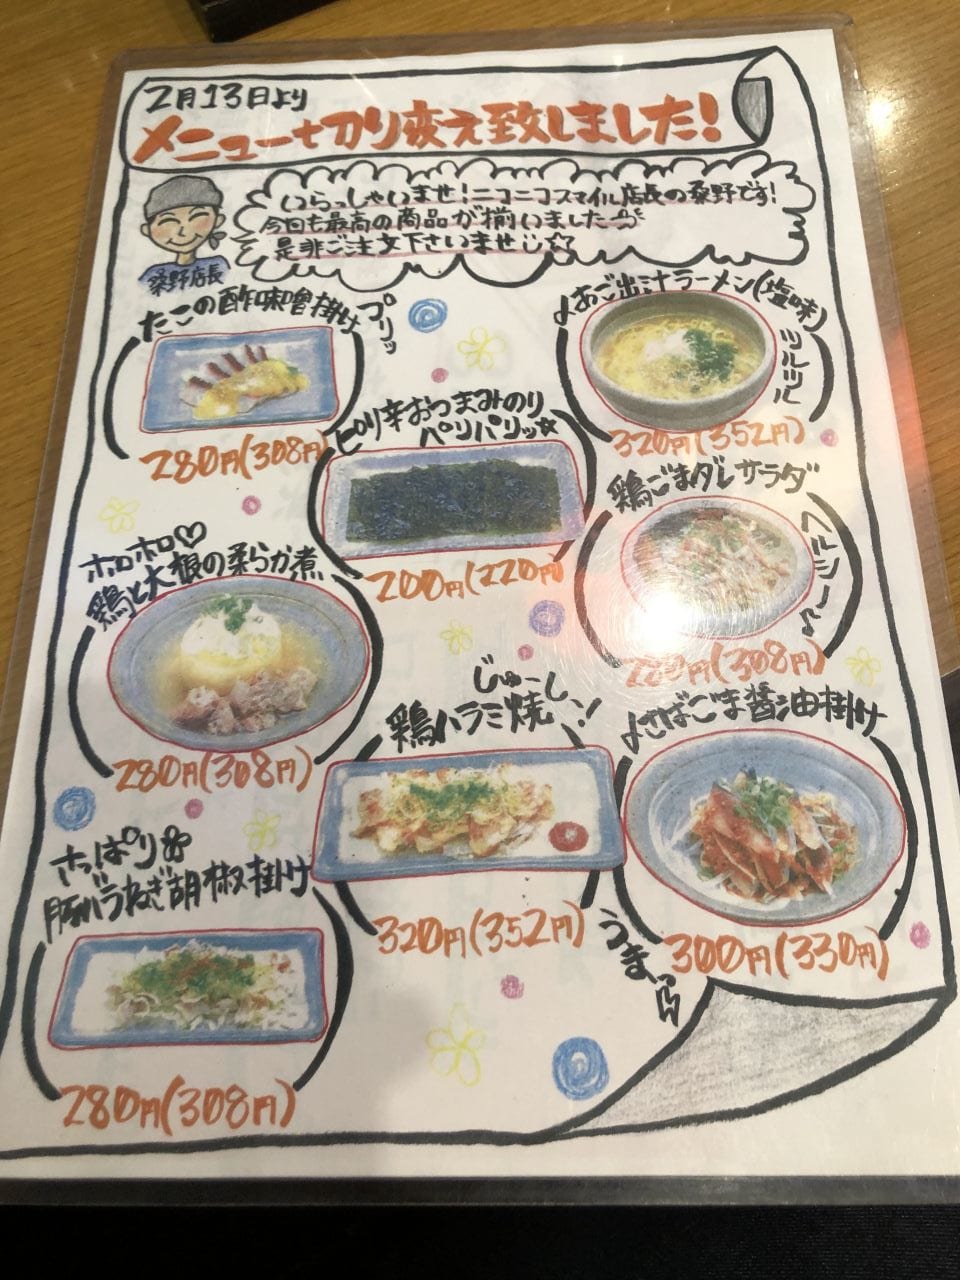 2月13日より
メニュー切り変え致しました!
いらっしゃいませ!ニコニコスマイル店長の桑野です!
今回も最高の商品が揃いました
是非ご注文下さいませ
桑野店長
たこの酢味噌掛け
プリッ
280円(308円)
あご出汁ラーメン(塩味)
ツルツル
320円(352円)
ピリ辛おつまみのり
パリパリッ☆
200円(220円)
鶏ごまダレサラダ
ヘルシー♪
280円(308円)
ホロホロ♡
鶏と大根の柔らか煮
280円(308円)
じゅーしー!
鶏ハラミ焼
320円(352円)
〆さばごま醤油掛け
うまっ
300円(330円)
さっぱり
豚バラねぎ胡椒掛け
280円(308円)